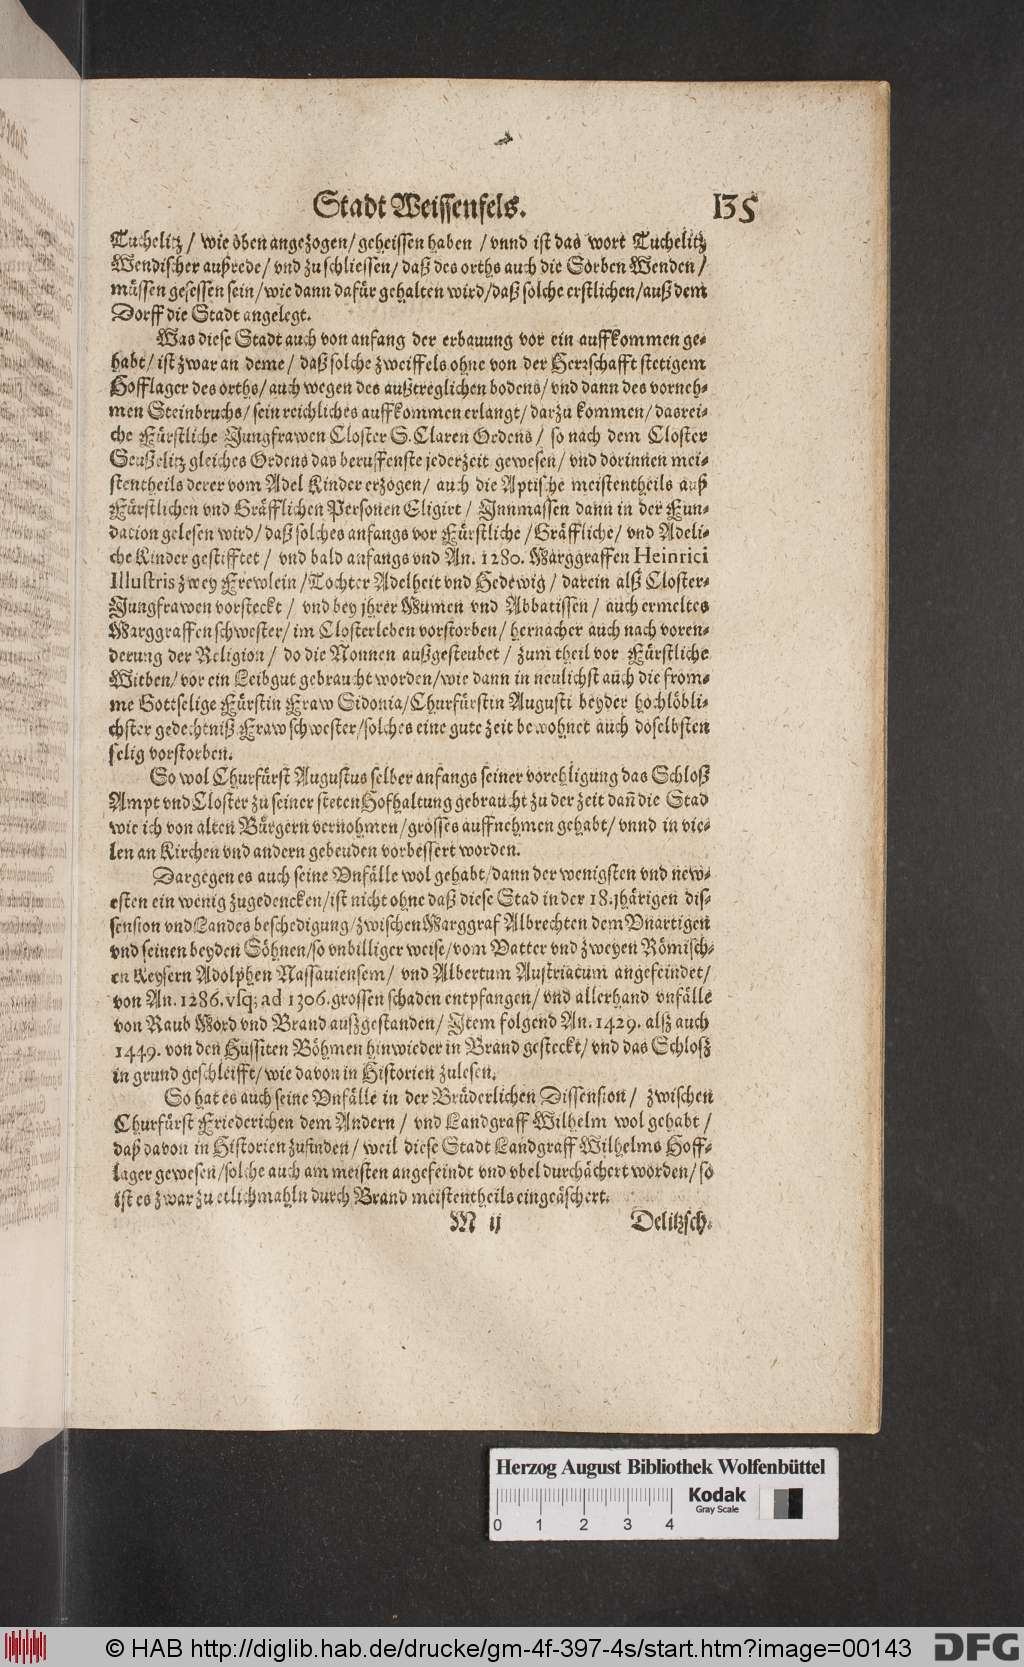 Stadt Weissenfels. 135
Tuchelitz / wie oben angezogen / geheissen haben / vnnd ist das wort Tuchelitz
Wendischer außrede / vnd zu schliessen / daß des orths auch die Sorben Wenden /
müssen gesessen sein / wie dann dafür gehalten wird / daß solche erstlichen / auß dem
Dorff die Stadt angelegt.
Was diese Stadt auch von anfang der erbauung vor ein auffkommen ge-
habt / ist zwar an deme / daß solche zweiffels ohne von der Herrschafft stetigem
Hofflager des orths / auch wegen des außtreglichen bodens / vnd dann des vorneh-
men Steinbruchs / sein reichliches auffkommen erlangt / darzu kommen / das rei-
che Fürstliche Jungfrawen Closter S. Claren Ordens / so nach dem Closter
Seußelitz gleiches Ordens das beruffenste jederzeit gewesen / vnd dorinnen mei-
stentheils derer vom Adel Kinder erzogen / auch die Aptische meistentheils auß
Fürstlichen vnd Gräfflichen Personen Eligirt / Innmassen dann in der Fun-
dation gelesen wird / daß solches anfangs vor Fürstliche / Gräffliche / vnd Adeli-
che Kinder gestifftet / vnd bald anfangs vnd An. 1280. Marggraffen Heinrici
Illustris zwey Frewlein / Tochter Adelheit vnd Hedewig / darein alß Closter-
Jungfrawen vorsteckt / vnd bey jhrer Mumen vnd Abbatissen / auch ermeltes
Marggraffen schwester / im Closterleben vorstorben / hernacher auch nach voren-
derung der Religion / do die Nonnen außgesteubet / zum theil vor Fürstliche
Witben / vor ein Leibgut gebraucht worden / wie dann in neulichst auch die from-
me Gottselige Fürstin Fraw Sidonia / Churfürstin Augusti beyder hochlöbli-
chster gedechtniß Fraw schwester / solches eine gute zeit bewohnet auch doselbsten
selig vorstorben.
So wol Churfürst Augustus selber anfangs seiner vorehligung das Schloß
Ampt vnd Closter zu seiner steten Hofhaltung gebraucht zu der zeit dañ die Stad
wie ich von alten Bürgern vernohmen / grosses auffnehmen gehabt / vnnd in vie-
len an Kirchen vnd andern gebeuden vorbessert worden.
Dargegen es auch seine Vnfälle wol gehabt / dann der wenigsten vnd new-
esten ein wenig zugedencken / ist nicht ohne daß diese Stad in der 18. jhärigen dis-
sension vnd Landes beschedigung / zwischen Marggraf Albrechten dem Vnartigen
vnd seinen beyden Söhnen / so vnbilliger weise / vom Vatter vnd zweyen Römisch-
en Keysern Adolphen Nassauiensem / vnd Albertum Austriacum angefeindet /
von An. 1286. vsq; ad 1306. grossen schaden entpfangen / vnd allerhand vnfälle
von Raub Mord vnd Brand außgestanden / Item folgend An. 1429. alß auch
1449. von den Hussiten Böhmen hinwieder in Brand gesteckt / vnd das Schloß
in grund geschleifft / wie davon in Historien zulesen.
So hat es auch seine Vnfälle in der Brüderlichen Dissension / zwischen
Churfürst Friederichen dem Andern / vnd Landgraff Wilhelm wol gehabt /
daß davon in Historien zufinden / weil diese Stadt Landgraff Wilhelms Hoff-
lager gewesen / solche auch am meisten angefeindt vnd vbel durchächert worden / so
ist es zwar zu etlichmahln durch Brand meistentheils eingeäschert.
M ij Delitzsch.
Herzog August Bibliothek Wolfenbüttel
Kodak
Gray Scale
0 1 2 3 4
© HAB http://diglib.hab.de/drucke/gm-4f-397-4s/start.htm?image=00143
DFG